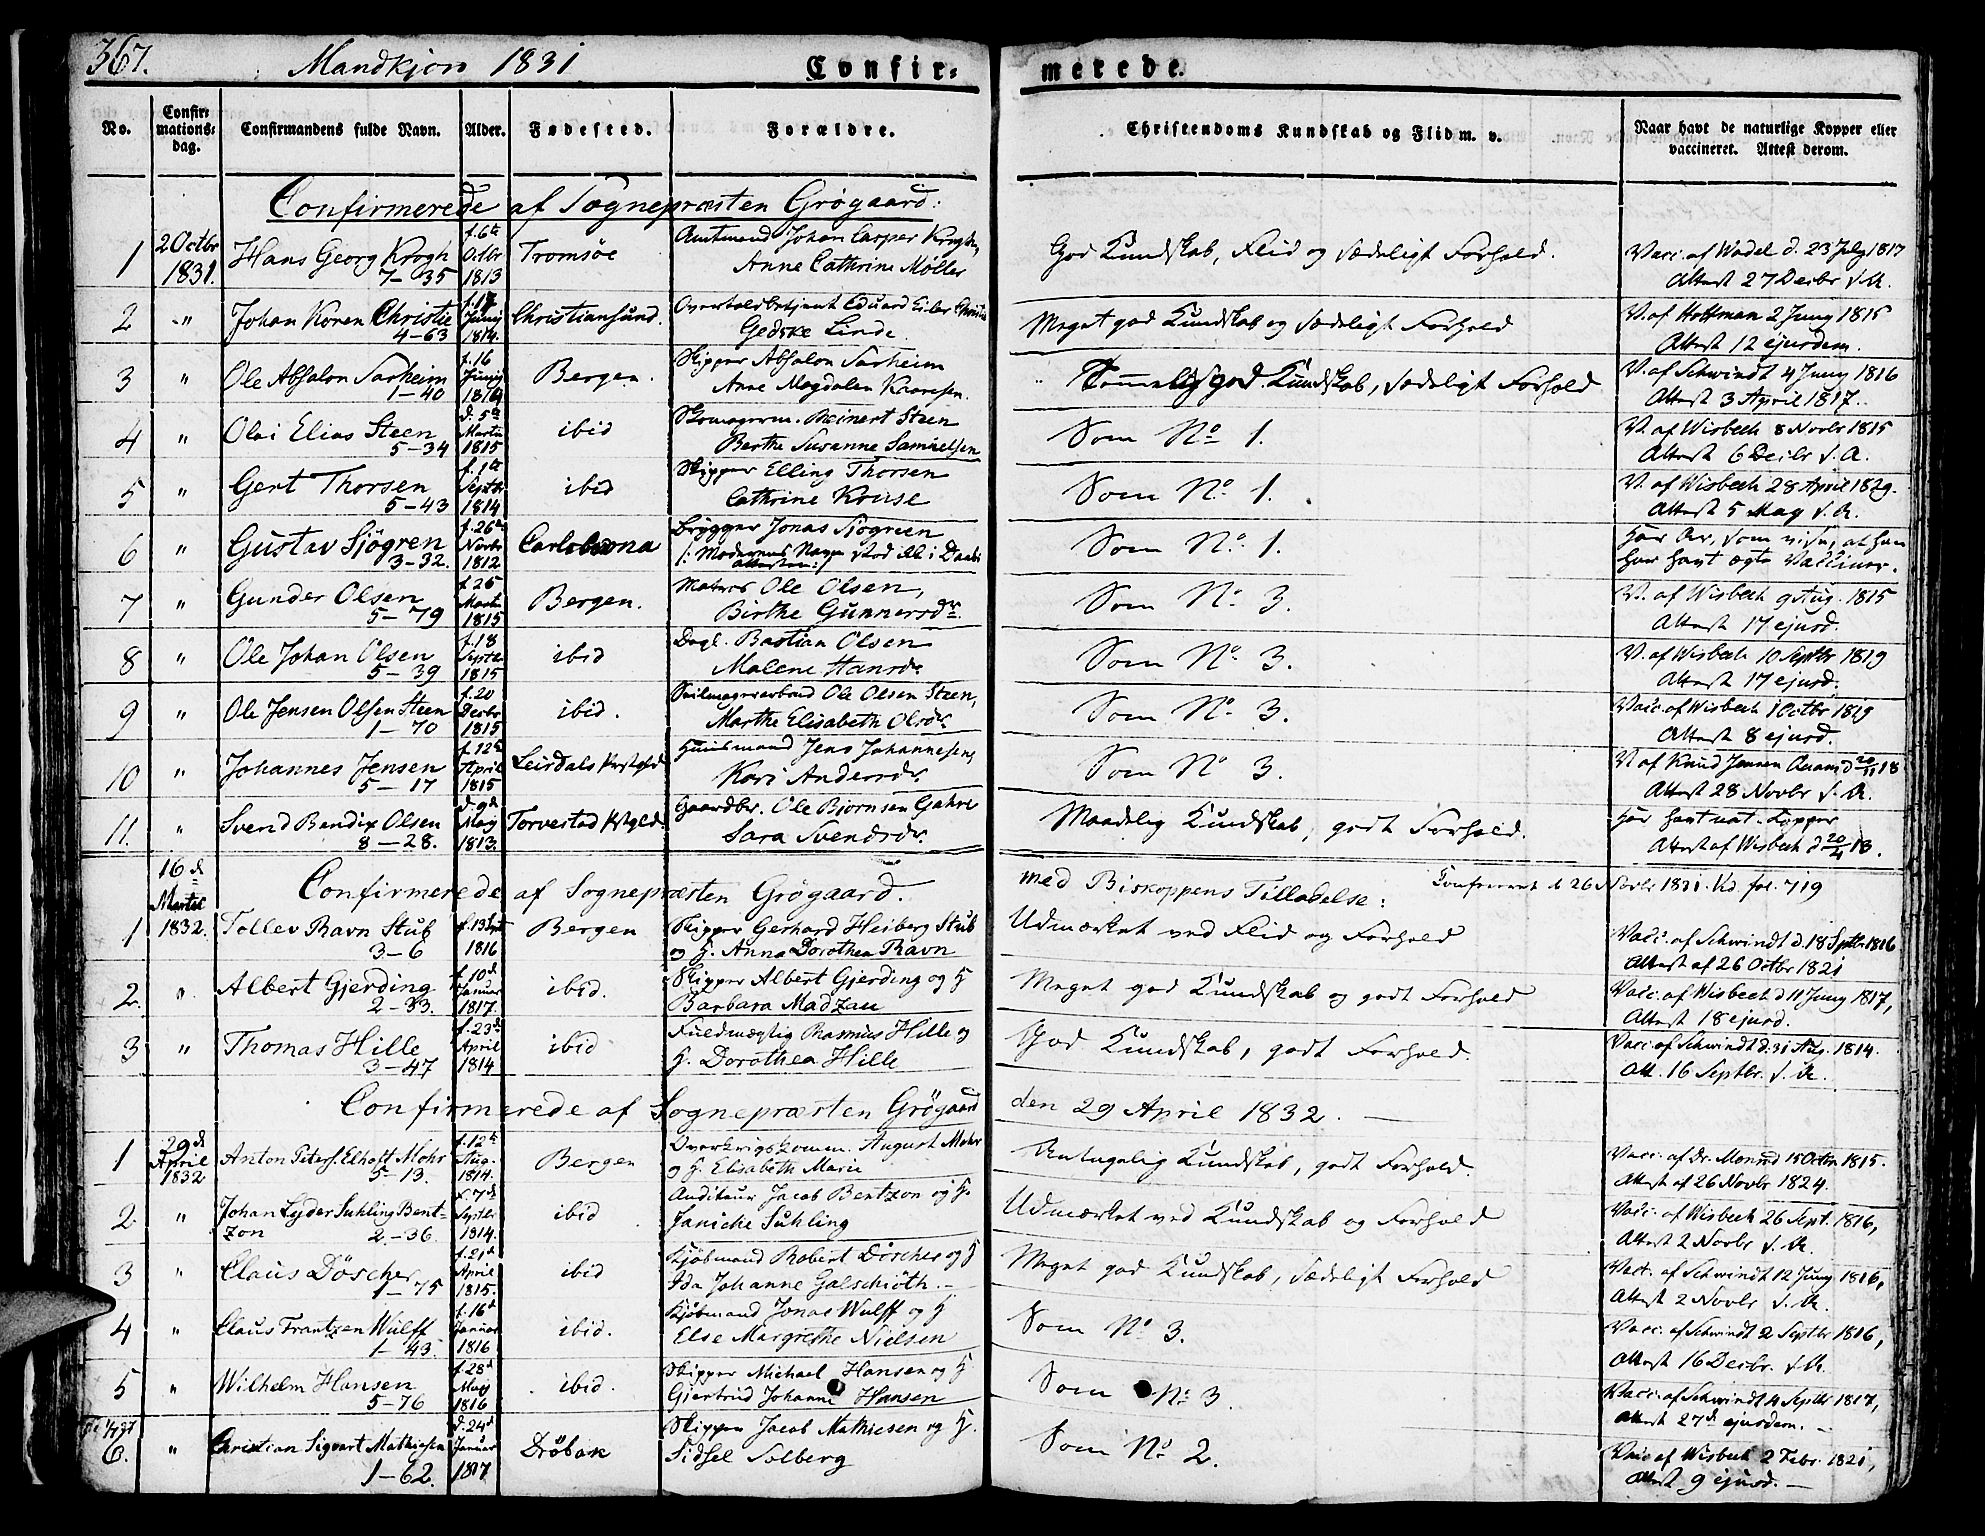 367. Mandkjön 1831 Confir- merede.
No. Confirmations-dag. Confirmandens fulde Navn. Alder. Fødested. Forældre. Christendoms Kundskab og Flid m. v. Naar havt de naturlige Kopper eller vaccineret. Attest derom.
Confirmerede af Sognepræsten Grøgaard:
1 2 Octbr 1831. Hans Georg Krogh 7-35 f. 6te Octbr 1813 Tromsöe Amtmand Johan Casper Krogh, Anne Cathrine Möller God Kundskab, Flid og sædeligt Forhold. Vacc. af Wadel d. 23 July 1817 Attest 27 Decbr s. A.
2 -" Johan Koren Christie 4-63 f. 17 Juny 1814. Christiansund. Overtoldbetjent Eduard Eiler Christie Gedske Linde Meget god Kundskab og sædeligt Forhold V. af Hoffman 2 Juny 1815 Attest 12 ejusdem.
3 " Ole Absalon Sarheim 1-40 f. 16 Juny 1816 Bergen. Skipper Absalon Sarheim Anne Magdalen Knaresen. Temmelig god Kundskab, sædeligt Forhold V. af Schwindt 4 Juny 1816 Attest 3 April 1817.
4 " Olai Elias Steen 5-34 d. 5te Marts 1815 ibid Skomagerm. Reinert Steen Berthe Susanne Samuelsen Som No 1. V. af Wisbech 8 Novbr 1815 Attest 6 Decbr s. A.
5 " Gert Thorsen 5-43 f. 1te Septbr 1814 ibid Skipper Elling Thorsen Cathrine Kruse Som No 1. V. af Wisbech 28 April 1829. Attest 5 May s. A.
6 " Gustav Sjögren 3-32. f. 26te Novbr 1812 Carlscrona Brygger Jonas Sjögreen /: Moderens Navn stod ikke i Daabsattesten:/ Som No. 1. Har Ar, som vise, at han har havt ægte Vacciner.
7 " Gunder Olsen 5-79 f. 25 Marts 1815 Bergen. Matros Ole Olsen, Birthe Gunnersdr. Som No. 3. V. af Wisbech 9 Aug. 1815 Attest 17 ejusd.
8 " Ole Johan Olsen 5-39 f. 18 Septbr 1815 ibid Dagl. Bastian Olsen Malene Hansdr Som No. 3. V. af Wisbech 10 Septbr 1819 Attest 17 ejusd.
9 " Ole Jensen Olsen Steen 1-70 f. 20 Decbr 1815 ibid. Seilmagersvend Ole Olsen Steen, Marthe Elisabeth Olsdr. Som No. 3. Vacc. af Wisbech 1 Octbr 1819 Attest 8 ejusd.
10 " Johannes Jensen 5-17 f. 12te April 1815 Leirdals Prstgld. Huusmand Jens Johannesen, Kari Andersdr. Som No 3. V. af Knud Jensen Attest 28 Novbr s. A.
11. " Svend Bendix Olsen 8-28. d. 9de May 1813. Torvestad Prstgld. Gaardbr. Ole Bjornsen Sara Svendsdr. Maadelig Kundskab, godt Forhold. Har havt nat. Kopper Attest af Wisbech
Confirmerede af Sognepræsten Grøgaard. med Biskoppens Tilladelse: Confirmeret d 26 Novbr 1831. Vid. fol. 719
1 16d Martii 1832. Tollev Ravn Stub 3-6 1816 Bergen Skipper Gerhard Heiberg Stub og H. Anna Dorothea Ravn Udmærket ved Flid og Forhold Vacc. af Schwindt d. 18 Septbr 1816 Attest af 26 Octbr 1821
2. " Albert Gjerding 2-33. f. 10d Januar 1817. ibid. Skipper Albert Gjerding og H Barbara Madzau Meget god Kundskab og godt Forhold Vacc. af Wisbech d 11 Juny 1817, Attest 18 ejusd.
3 " Thomas Hille 3-47 f. 23d April 1814 ibid Fuldmægtig Rasmus Hille og H. Dorothea Hille God Kundskab, godt Forhold. Vacc. af Schwindt d. 31 Aug. 1814. Att. 16 Septbr. s. A.
Confirmerede af Sognepræsten Grögaard den 29 April 1832.
1 29d April 1832 Anton Peters. Elhoft Mohr 5-13. f. 12te Aug. 1814. Bergen Overkrigskomm. August Mohr og H. Elisabeth Marie Antagelig Kundskab, godt Forhold. Vacc. af Dr. Monrad 15 Octbr 1815. Attest af 26 Novbr 1824.
2. " Johan Lyder Suhling Bentzon 2-36. f. 7d Septbr 1814. ibid Auditeur Jacob Bentzon og H. Janiche Suhling Udmærket ved Kundskab og Forhold Vacc. af Wisbech 26 Sept. 1816, Attest 2 Novbr s. A.
3 " Claus Döscher 1-75 f. 21d April 1815. ibid Kjöbmand Robert Döscher og H Ida Johanne Galschiöth. Meget god Kundskab, sædeligt Forhold Vacc. af Schwindt 12 Juny 1816, Attest 2 Novbr s. A.
4 " Claus Frantzen Wulff 1-43. f. 16d Januar 1816 ibid. Kjöbmand Jonas Wulff og H Else Margrethe Nielsen Som No 3. Vacc. af Schwindt 2 Septbr 1816, Attest 16 Decbr. s. A.
5 " Wilhelm Hansen 5-76 f. 28d May 1816 ibid. Skipper Michael Hansen og H Gjertrud Johanne Hansen Som No. 3. Vacc. af Schwindt 4 Septbr 1817, Attest 27d ejusdem.
6. " Christian Sigvart Mathiesen 1-62. d. 24d Januar 1817 Dröbak Skipper Jacob Mathiesen og H. Sidsel Solberg Som No. 2. Vacc. af Wisbech 2 Febr. 1821, Attest 9 ejusd.